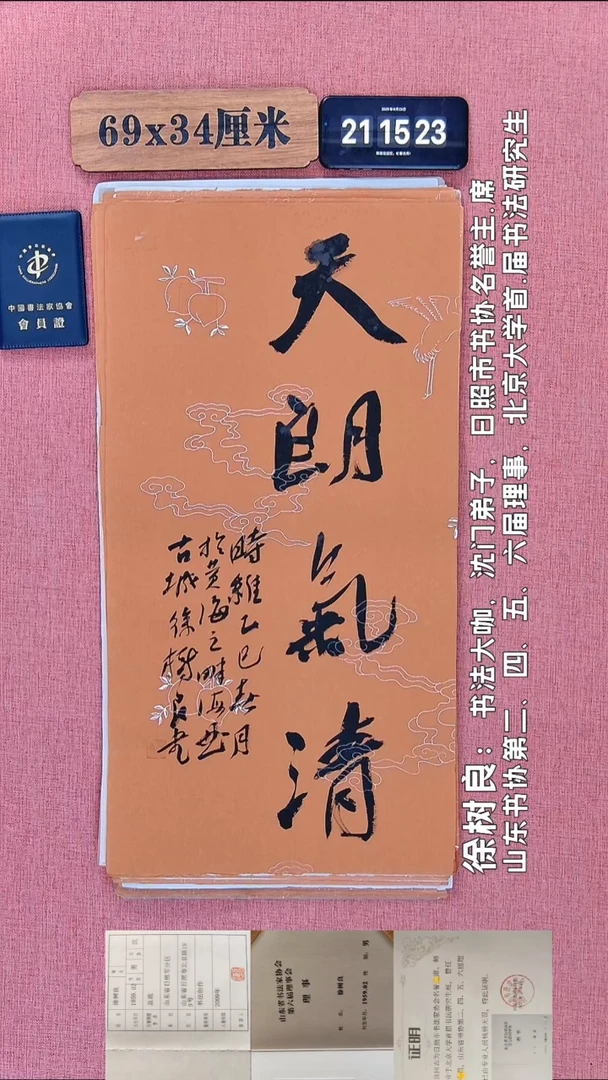 69x34厘米
21 15 23
中國書法家協會
會員證
天朗氣清
時維乙巳春月
於黃海之畔海曲
古城徐樹良書
徐树良：书法大咖，沈门弟子，日照市书协名誉主.席
山东书协第二、四、五、六届理事，北京大学首.届书法研究生
山东省书法家协会
第六届理事会
理事
徐树良
男
1959.02
2009年
证明